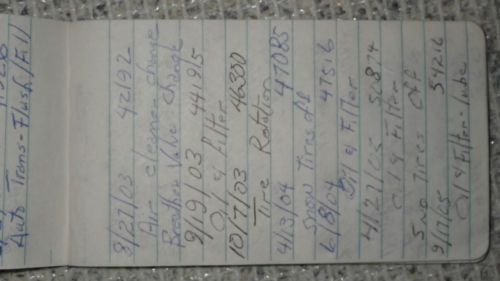 Auto Trans-Flush/Fill
8/27/03 42192
Air cleaner change
Breather Valve change
9/19/03 44195
Oil & filter
10/7/03 46330
Tire Rotation
4/3/04 47085
Snow Tires off
6/8/04 47516
Oil & Filter
4/27/05 50874
Oil & Filter
Sno Tires Off
9/17/05 54216
Oil & Filter-lube